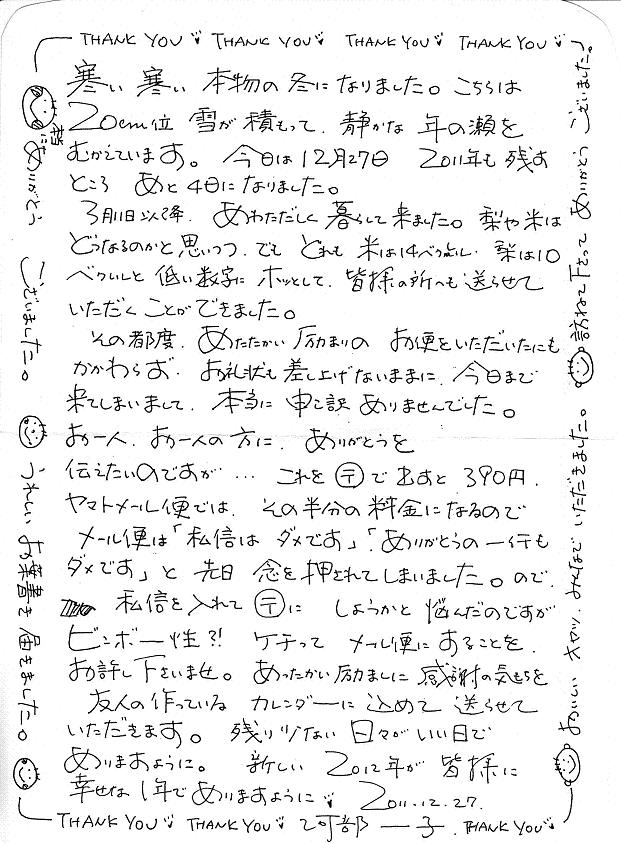 THANK YOU THANK YOU THANK YOU THANK YOU
寒い 寒い 本物の冬になりました。こちらは
20cm位 雪が積もって、静かな 年の瀬を
むかえています。今日は12月27日 2011年も残す
ところ あと4日になりました。
3月11日以降、あわただしく暮らして来ました。梨や米は
どうなるのかと思いつつ、でも どれも 米は14ベクレル、梨は10
ベクレルと 低い数字に ホッとして、皆様の所へも送らせて
いただくことができました。
その都度、あたたかい励ましの お便をいただいたにも
かかわらず、お礼状も差し上げないままに、今日まで
来てしまいまして、本当に申し訳ありませんでした。
お一人、お一人の方に、ありがとうを
伝えたいのですが… これを〒で出すと390円、
ヤマトメール便では、その半分の料金になるので
メール便は「私信は ダメです」「ありがとうの一行も
ダメです」と 先日 念を押されてしまいました。ので、
私信を入れて〒に しようかと悩んだのですが
ビンボー性?! ケチって メール便にあることを、
お許し下さいませ。あったかい励ましに感謝の気もちを
友人の作っている カレンダーに込めて 送らせて
いただきます。残り少ない日々がいい日で
ありますように。新しい 2012年が皆様に
幸せな1年でありますように 2011.12.27.
THANK YOU THANK YOU 阿部一子. THANK YOU
ありがとう ございました。
うれしい お葉書も 届きました。
おいしい みんなで いただきました。
訪ねて下さって ありがとう ございました。